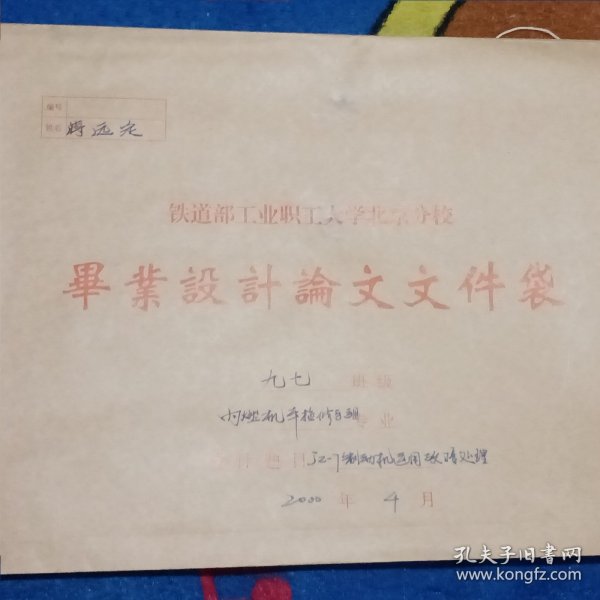 编号
姓名 蒋远定
铁道部工业职工大学北京分校
畢業設計論文文件袋
九七 班级
内燃机车检修与运用 专业
设计题目 JZ-7制动机运用故障处理
2000 年 4 月
孔夫子旧书网
www.kongfz.com